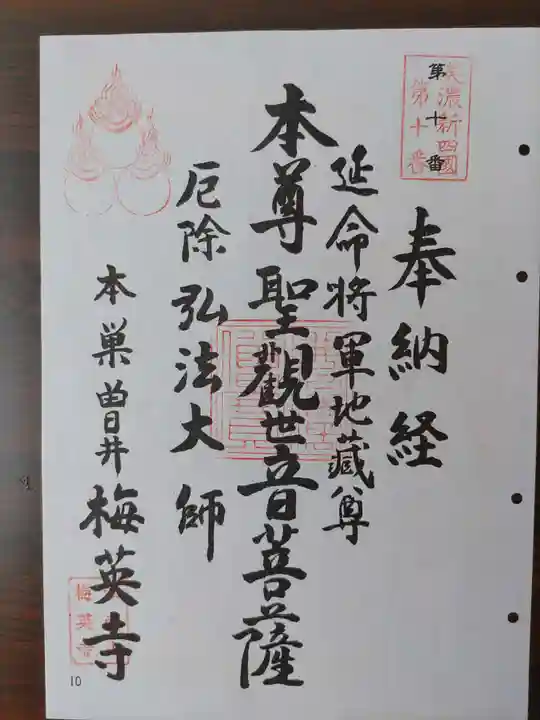 美濃新四國
第十番
第十番
奉納経
延命将軍地蔵尊
本尊聖観世音菩薩
厄除弘法大師
本巣曽井梅英寺
梅英寺
10